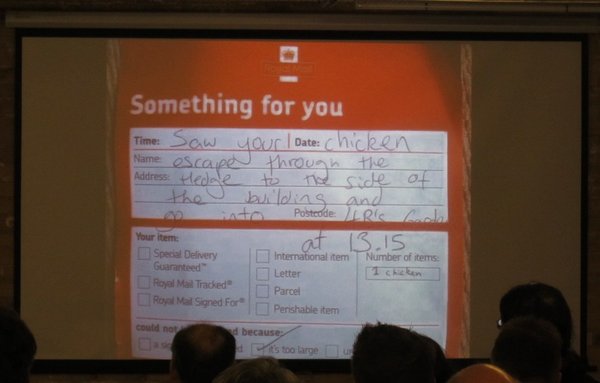 Royal Mail
Something for you
Time: Saw your Date: chicken
Name: escape through the
Address: Hedge to the side of
the building and
go into Postcode:
at 13.15
Your item:
Special Delivery
Guaranteed™
Royal Mail Tracked®
Royal Mail Signed For®
International item
Letter
Parcel
Perishable item
Number of items:
1 chicken
could not because:
it's too large